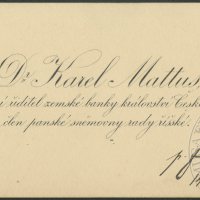 Dr Karel Mattuš,
ředitel zemské banky království České
člen panské sněmovny rady říšské.
p. f.